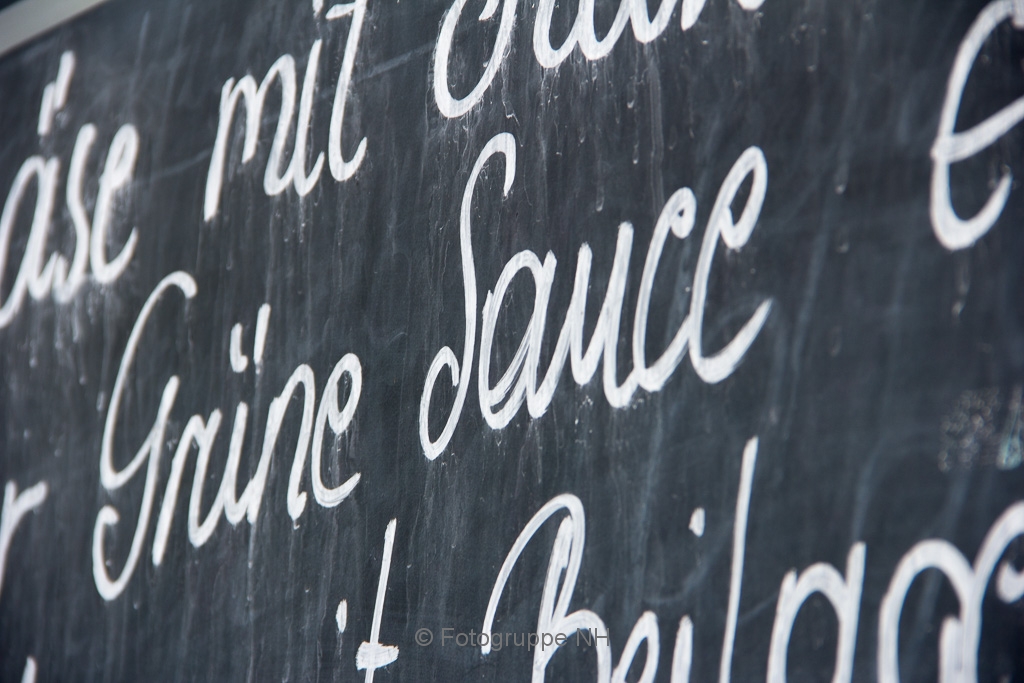 äse mit
Grüne Sauce
r
it Beilag
© Fotogruppe NH